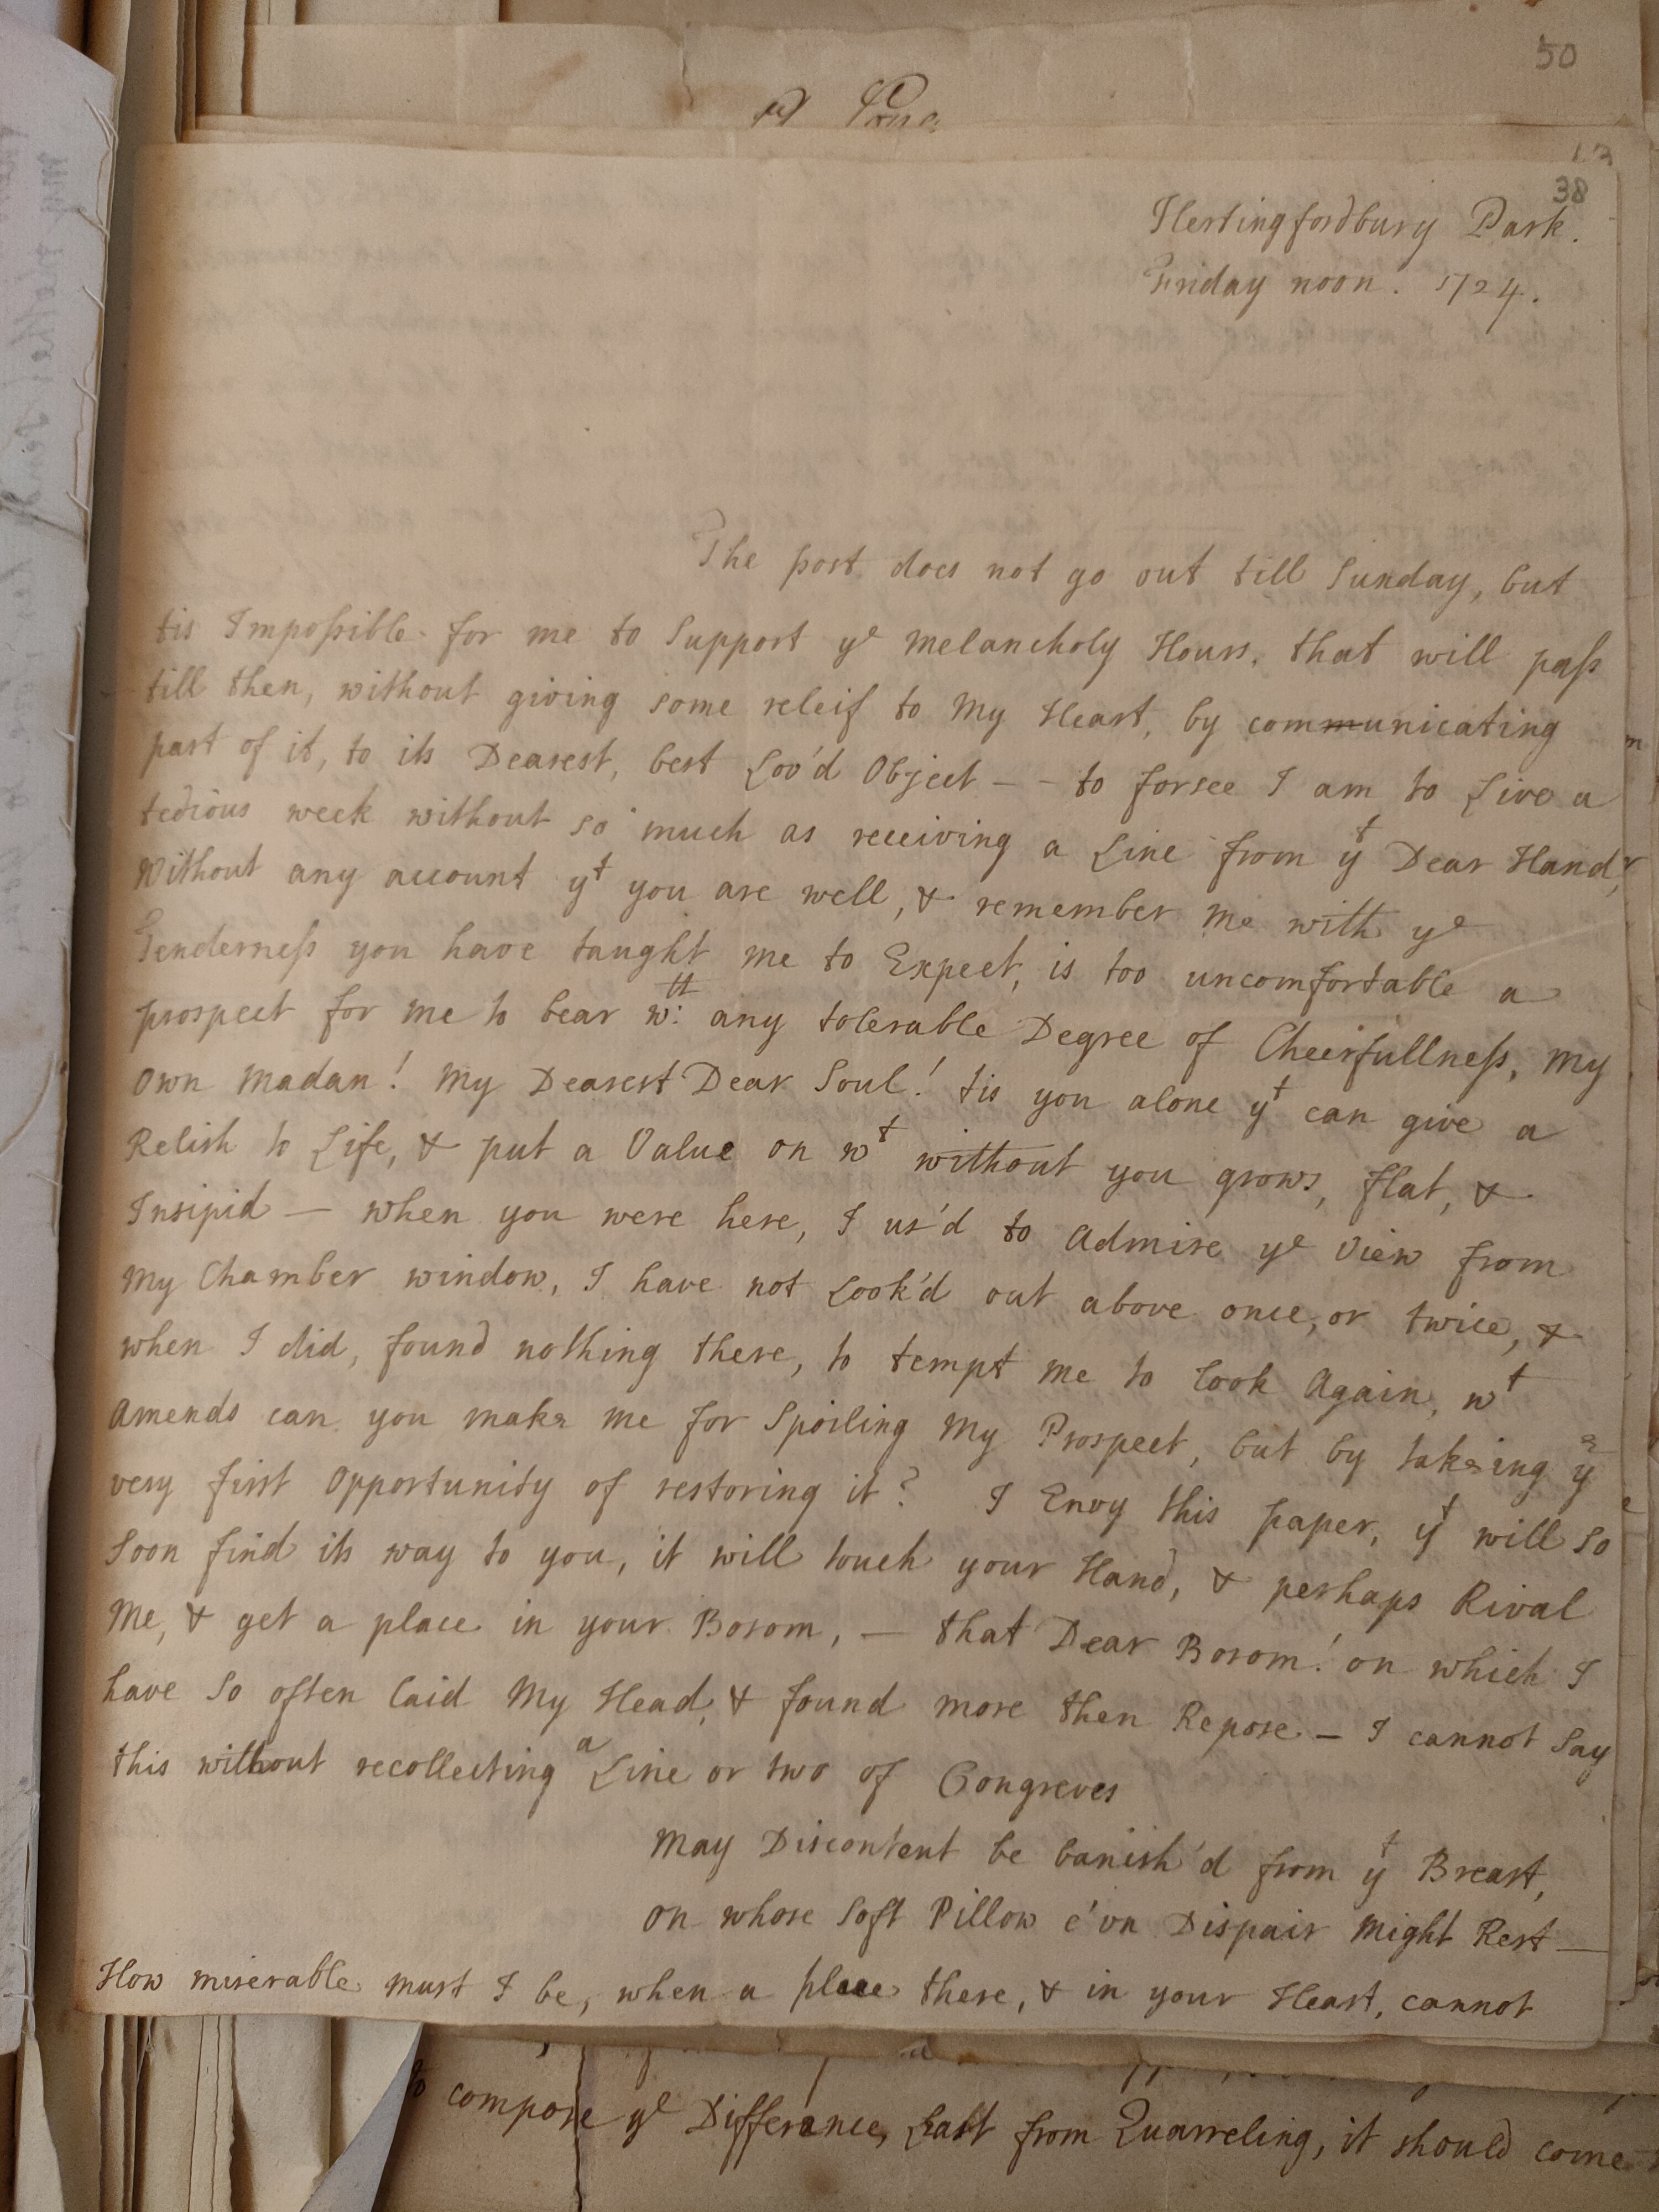 50
38
Hertingfordbury Park.
Friday noon. 1724.
The post does not go out till Sunday, but
tis Impossible for me to Support ye melancholy Hours, that will pass
till then, without giving some releif to My Heart, by communicating
part of it, to its Dearest, best Lov'd Object -- to forsee I am to Live a
tedious week without so much as receiving a Line from yt Dear Hand,
Without any account yt you are well, & remember me with ye
Tenderness you have taught me to Expect, is too uncomfortable a
prospect for me to bear wtt: any tolerable Degree of Cheerfullness, My
Own Madan! My Dearest Dear Soul! tis you alone yt can give a
Relish to Life, & put a Value on wt without you grows, flat, &
Insipid — when you were here, I us'd to Admire ye View from
My Chamber window, I have not Look'd out above once, or twice, &
when I did, found nothing there, to tempt me to look Again, wt
Amends can you make me for Spoiling My Prospect, but by takeing ye
very first Opportunity of restoring it? I Envy this paper, yt will so
Soon find its way to you, it will touch your Hand, & perhaps Rival
Me, & get a place in your Bosom, — that Dear Bosom! on which I
have So often laid My Head, & found more then Repose — I cannot Say
this without recollecting a Line or two of Congreves
May Discontent be banish'd from yt Breast,
On whose Soft Pillow e'vn Dispair Might Rest —
How miserable must I be, when a place there, & in your Heart, cannot
compose ye Difference, Last from Quarreling, it should come